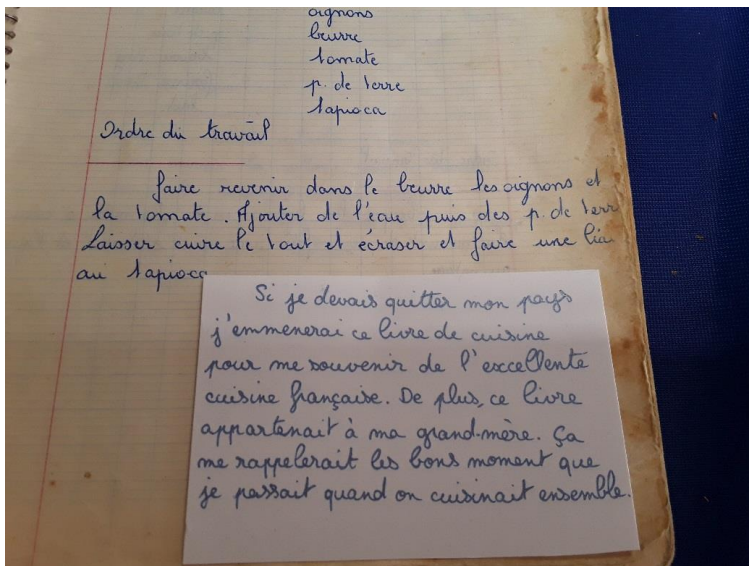 oignons
beurre
tomate
p. de terre
tapioca
Ordre du travail
faire revenir dans le beurre les oignons et
la tomate. Ajouter de l'eau puis des p. de terr
Laisser cuire le tout et écraser et faire une lia
au tapioca
Si je devais quitter mon pays
j'emmenerai ce livre de cuisine
pour me souvenir de l'excellente
cuisine française. De plus, ce livre
appartenait à ma grand-mère. Ça
me rappelerait les bons moment que
je passait quand on cuisinait ensemble.